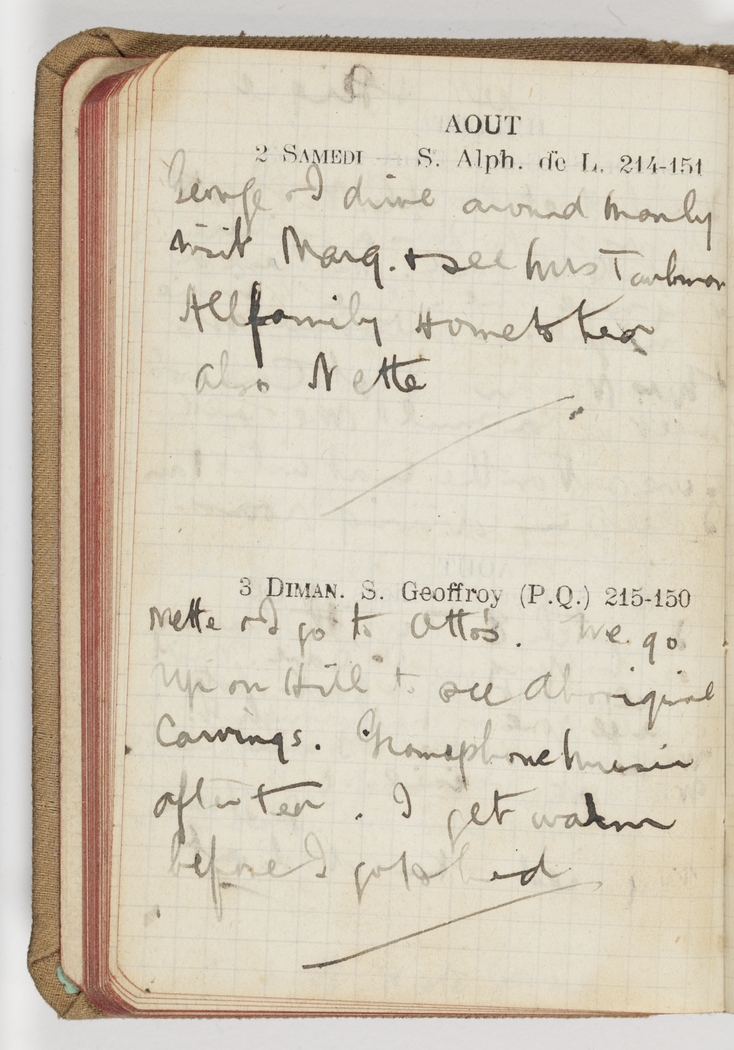 AOUT
2 SAMEDI — S. Alph. de L. 214-151
George & I drive around Manly
visit Marg. & see Mrs Taubman
All family Home to tea
also Nette
3 DIMAN. S. Geoffroy (P.Q.) 215-150
Nette & I go to Otto's. We go
up on Hill to see Aboriginal
Carvings. Gramophone music
after tea. I get warm
before I go to bed